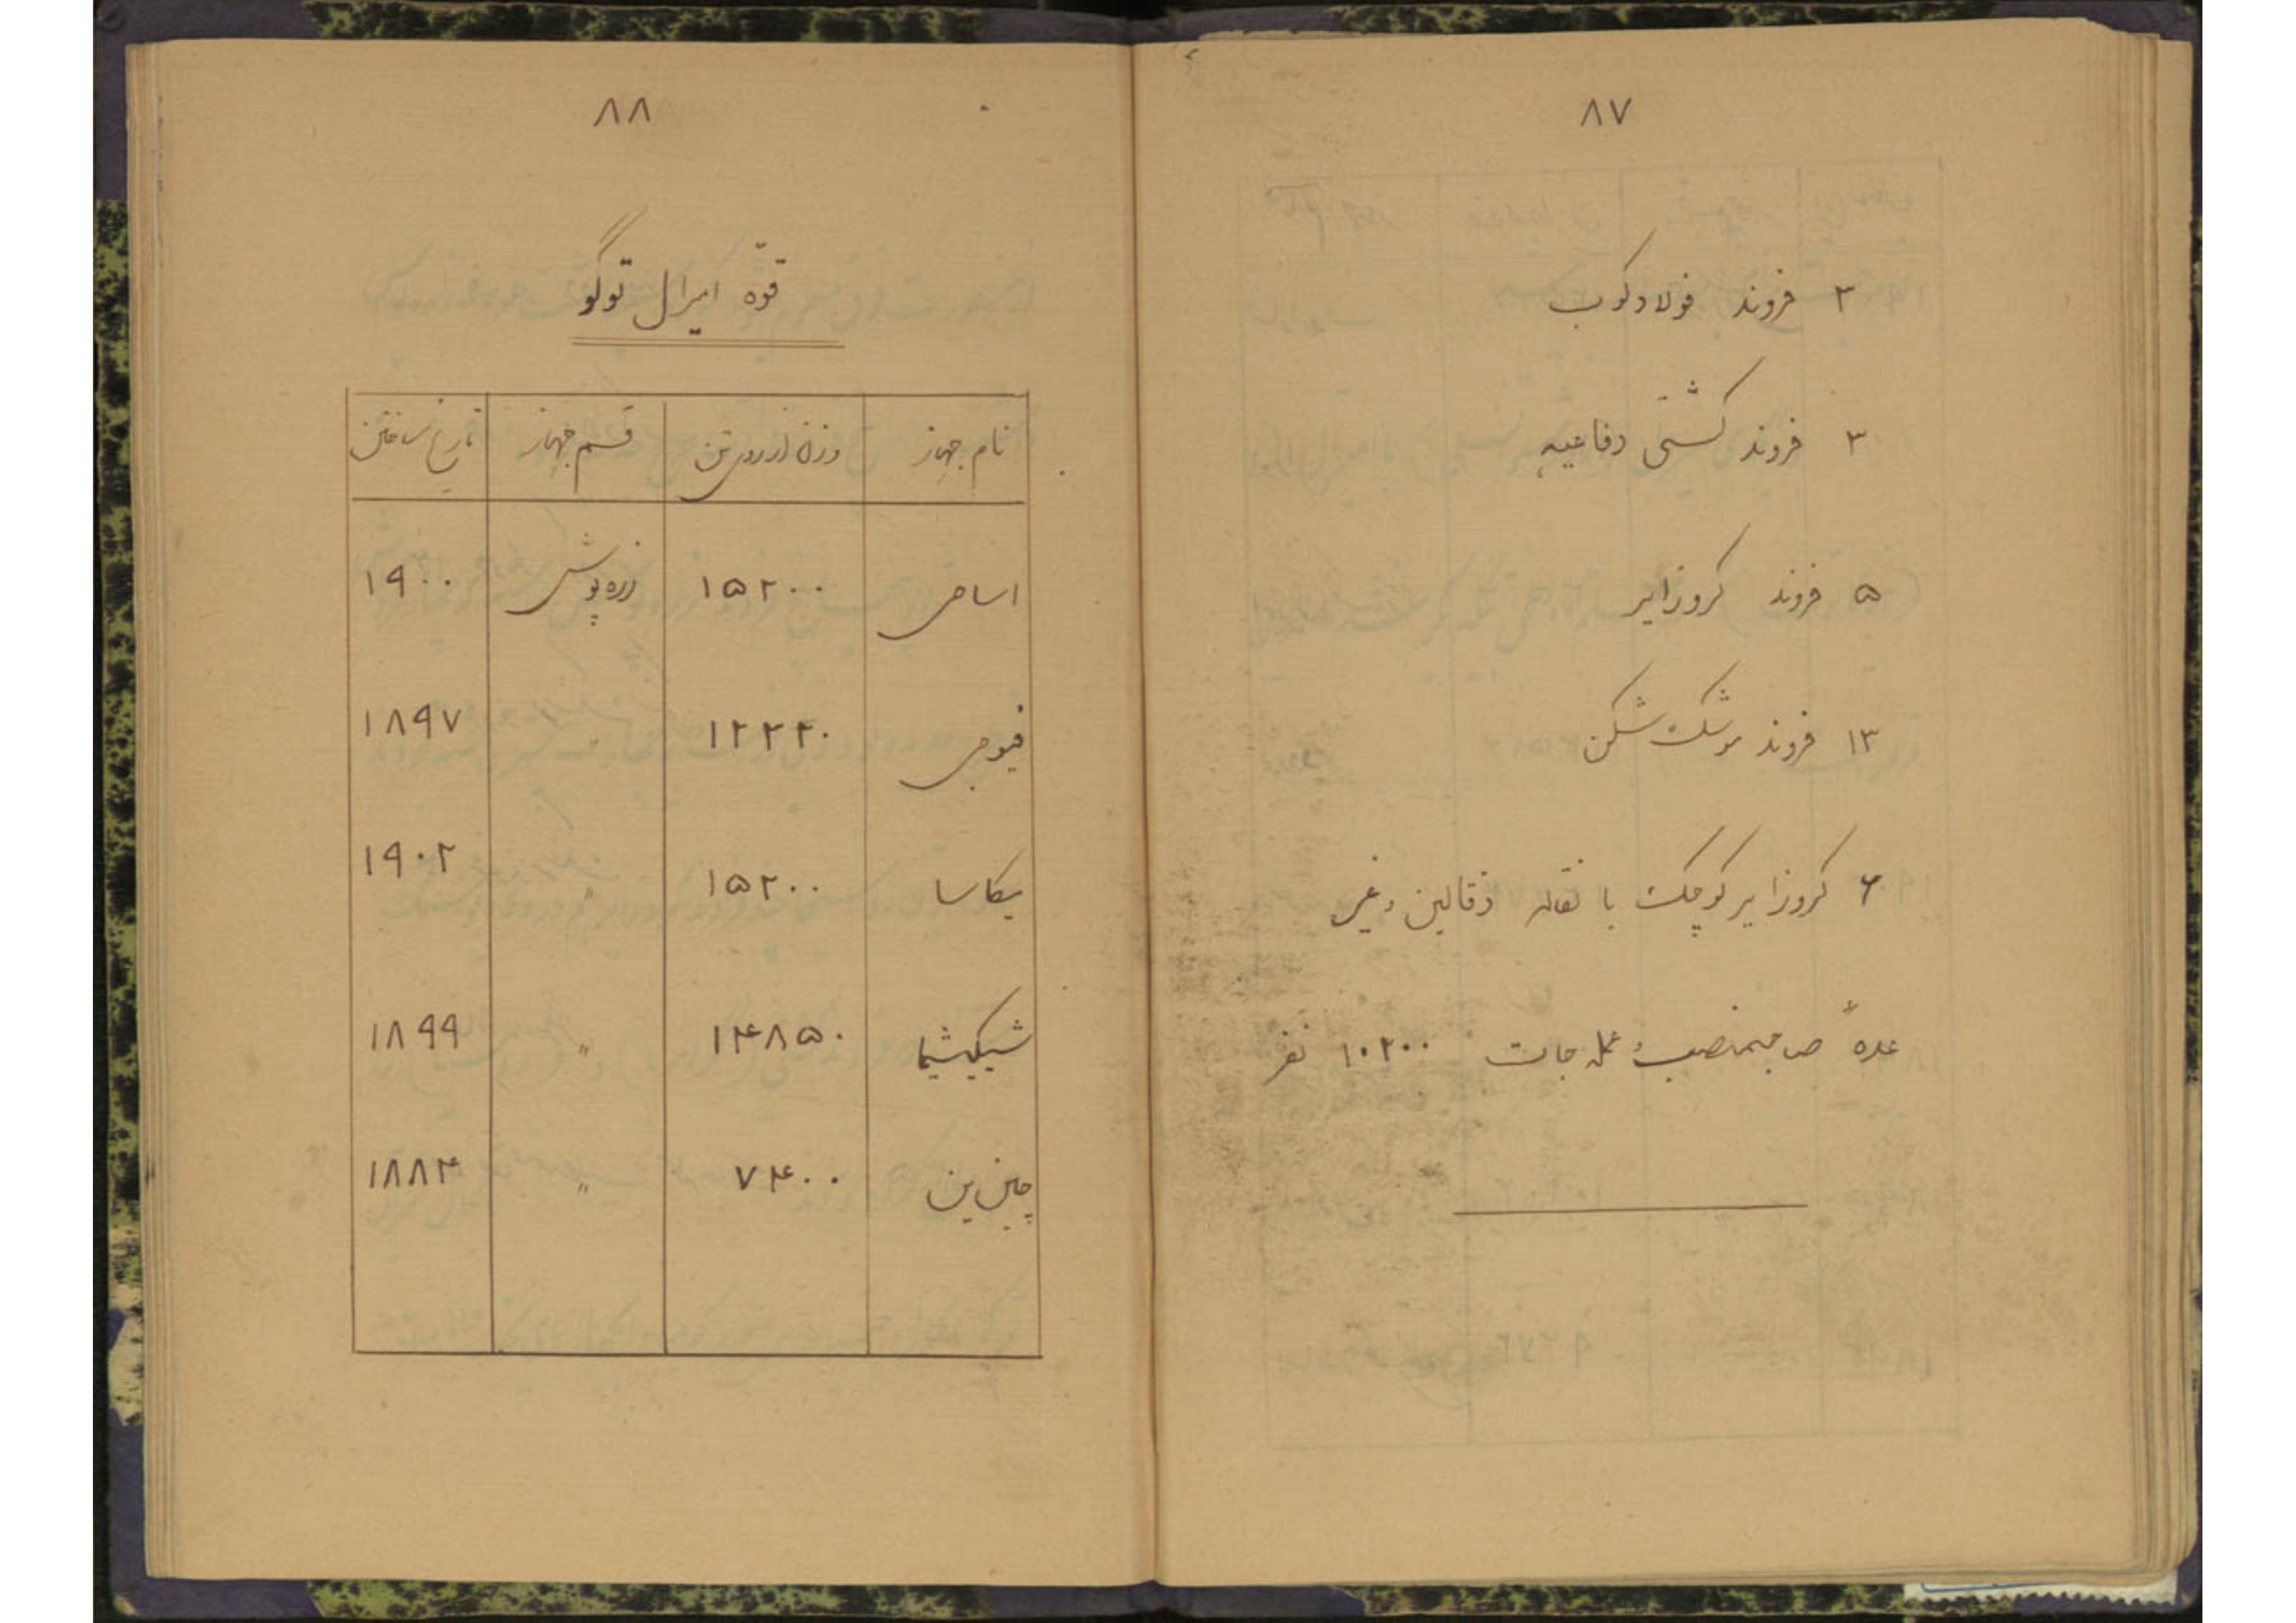 ۸۷
۳ فروند فولادکوب
۳ فروند کشتی دفاعیه
۵ فروند کروزایر
۱۳ فروند موشک شکن
۶ کروزایر کوچک با نقاله ذقالین و غیر
عدهٔ صاحبمنصب و عمله جات ۱۰۲۰۰ نفر
۸۸
قوّه امیرال توگو
نام جهاز وزن از روی تن قسم جهاز تاریخ ساختن
اساحی ۱۵۲۰۰ زره پوش ۱۹۰۰
فیوجی ۱۲۲۲۰ " ۱۸۹۷
یکاسا ۱۵۲۰۰ " ۱۹۰۲
شیکیشیما ۱۴۸۵۰ " ۱۸۹۹
چین ین ۷۴۰۰ " ۱۸۸۴